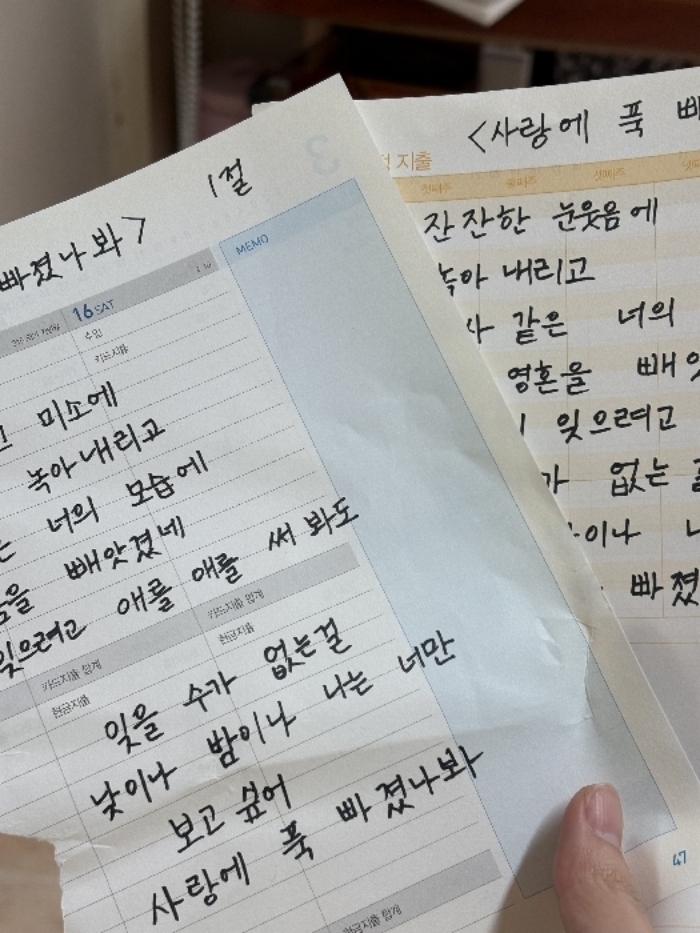 1절
빠졌나봐>
MEMO
16 SAT
수입
카드지출
미소에
녹아내리고
너의 모습에
빼앗겼네
잊으려고 애를 애를 써 봐도
카드지출 합계
현금지출
카드지출 합계
현금지출
잊을 수가 없는걸
낮이나 밤이나 나는 너만
보고 싶어
사랑에 푹 빠졌나봐
현금지출 합계
47
<사랑에 푹
지출
잔잔한 눈웃음에
녹아 내리고
같은 너의
영혼을
잊으려고
없는
빠졌